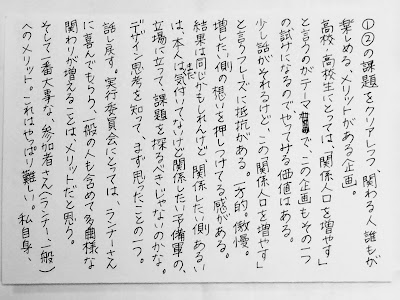 ①②の課題をクリアしつつ、関わる人誰もが
楽しめる、メリットがある企画。
高校・高校生にとっては、「関係人口を増やす」
と言うのがテーマで、この企画もその一つ
の試みになるのでやってみる価値はある。
少し話がそれるけど、この「関係人口を増やす」
と言うフレーズに抵抗がある。一方的。傲慢。
増したい側の想いを押しつけてる感がある。
結果は同じかもしれんけど、関係したい側、あるい
は、本人はまだ気付いてないけど関係したい予備軍の、
立場に立って課題を探るべきじゃないのかな。
デザイン思考を知って、まず思ったことの一つ。
話し戻す。実行委員会にとっては、ランナーさん
に喜んでもらい、一般の人も含めて多曲様な
関わりが増えることは、メリットだと思う。
そして一番大事な、参加者さん(ランナー、一般)
へのメリット。これはやっぱり難しい。私自身、